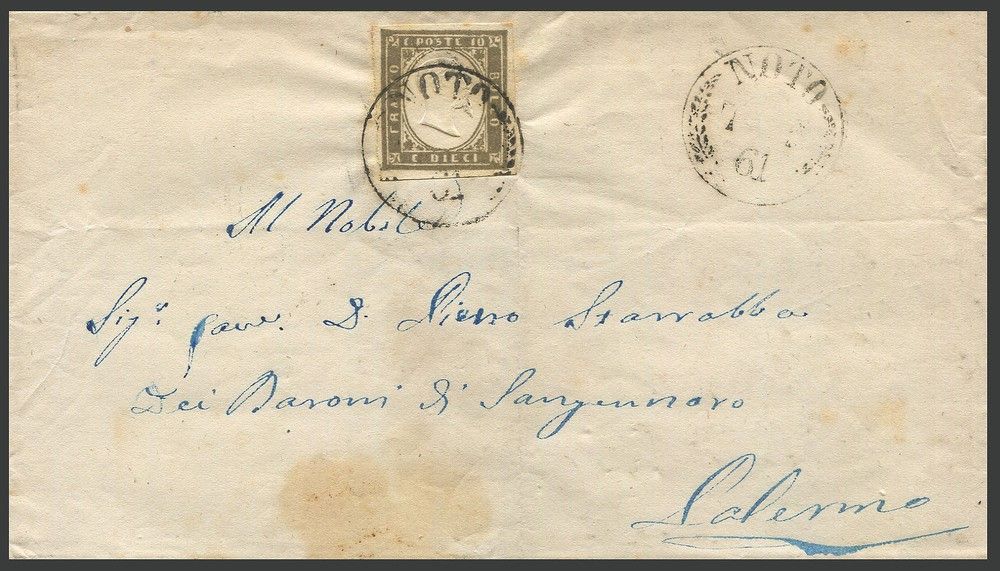 C. POSTE 10
FRANCO
BOLLO
C. DIECI
NOTO
61
NOTO
7
61
Al Nobile
Sigr. Cav. D. Pietro Starrabba
Dei Baroni di Sangennaro
Palermo